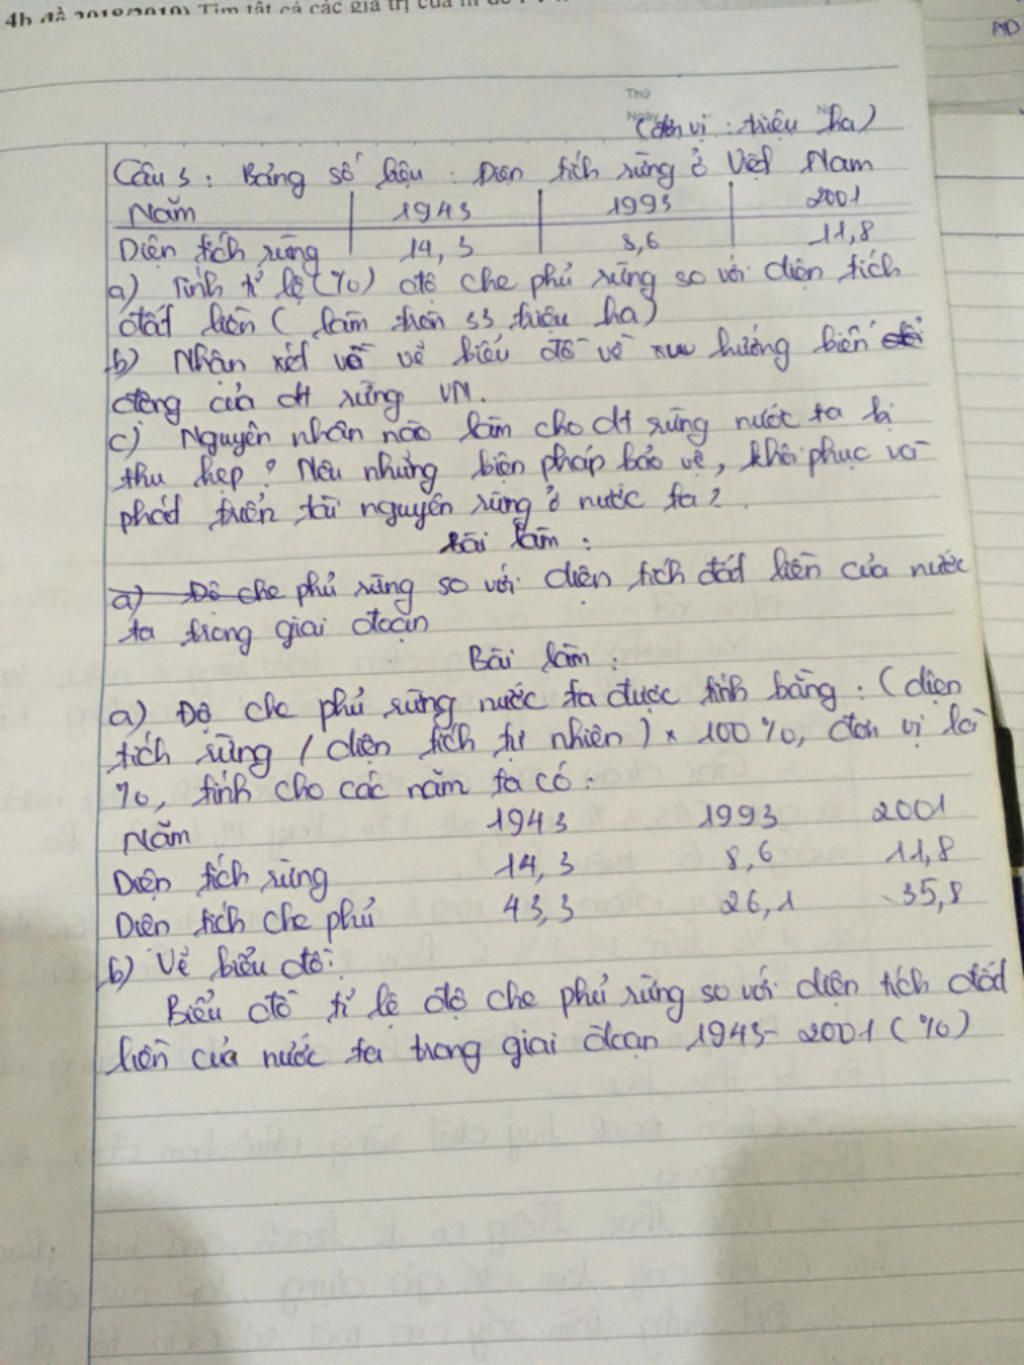 4b đề 2018/2019) Tìm tất cả các giá trị của m để
AD
Thứ
Ngày
(đơn vị : triệu ha)
Câu 3 : Bảng số liệu : Diện tích rừng ở Việt Nam
Năm 1943 1993 2001
Diện tích rừng 14,3 8,6 11,8
a) Tính tỉ lệ (%) độ che phủ rừng so với diện tích
đất liền ( làm tròn 33 triệu ha)
b) Nhận xét vẽ về biểu đồ về xu hướng biến
động của dt rừng VN.
c) Nguyên nhân nào làm cho dt rừng nước ta bị
thu hẹp ? Nêu những biện pháp bảo vệ, khôi phục và
phát triển tài nguyên rừng ở nước ta ?
Bài làm :
a) Độ che phủ rừng so với diện tích đất liền của nước
ta trong giai đoạn
Bài làm :
a) Độ che phủ rừng nước ta được tính bằng : (diện
tích rừng / diện tích tự nhiên) x 100%, đơn vị là
%, tính cho các năm ta có :
Năm 1943 1993 2001
Diện tích rừng 14,3 8,6 11,8
Diên tích che phủ 43,3 26,1 35,8
b) Vẽ biểu đồ :
Biểu đồ tỉ lệ độ che phủ rừng so với diện tích đất
liền của nước ta trong giai đoạn 1943- 2001 (%)